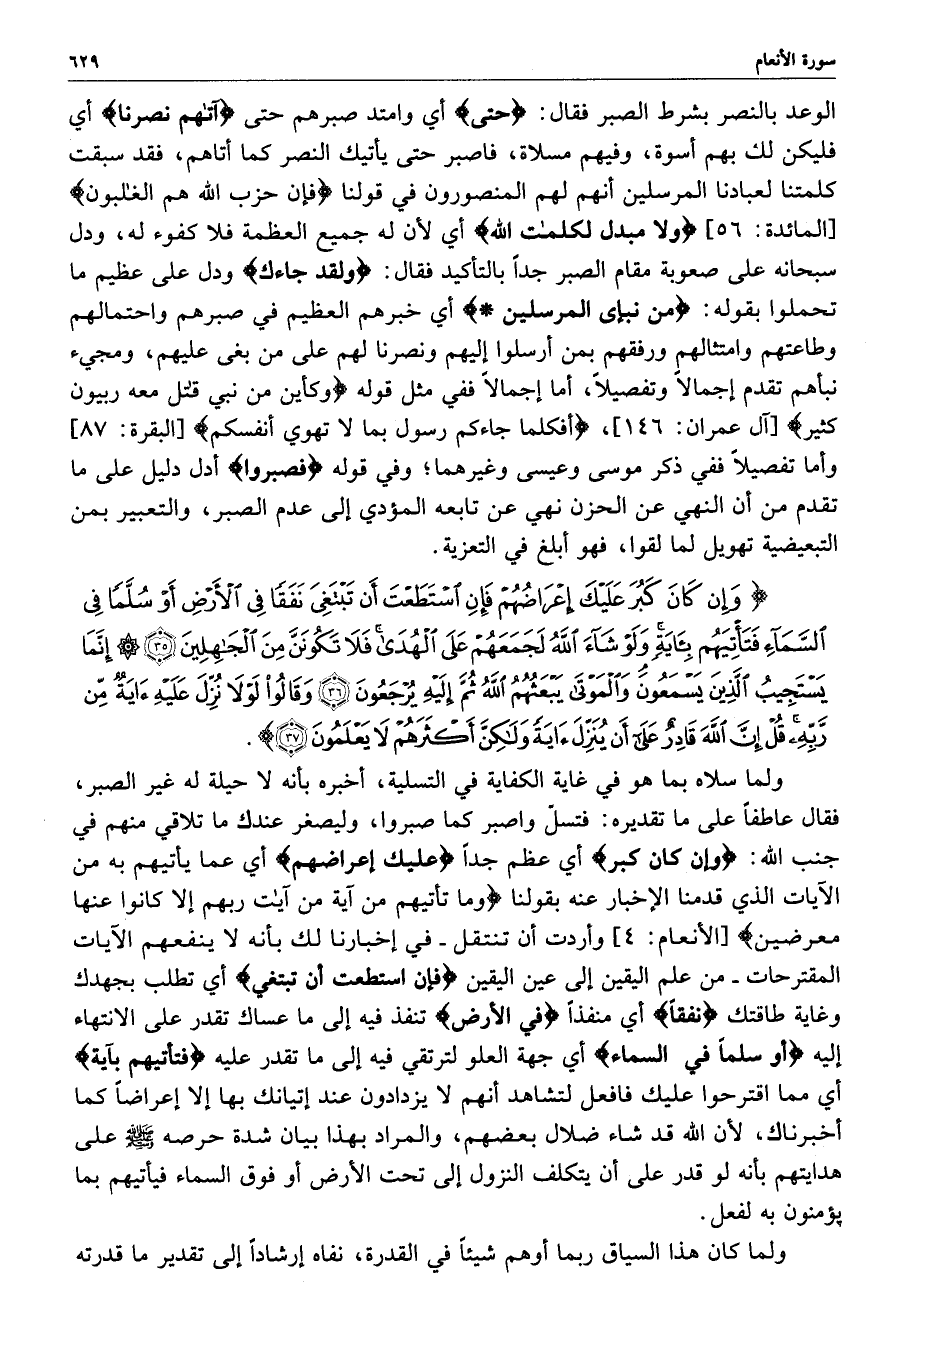 سورة الأنعام ٦٢٩
الوعد بالنصر بشرط الصبر فقال: ﴿حتى﴾ أي وامتد صبرهم حتى ﴿آتٰهم نصرنا﴾ أي
فليكن لك بهم أسوة، وفيهم مسلاة، فاصبر حتى يأتيك النصر كما أتاهم، فقد سبقت
كلمتنا لعبادنا المرسلين أنهم لهم المنصورون في قولنا ﴿فإن حزب الله هم الغٰلبون﴾
[المائدة: ٥٦] ﴿ولا مبدل لكلمٰت الله﴾ أي لأن له جميع العظمة فلا كفوء له، ودل
سبحانه على صعوبة مقام الصبر جداً بالتأكيد فقال: ﴿ولقد جاءك﴾ ودل على عظيم ما
تحملوا بقوله: ﴿من نبإى المرسلين *﴾ أي خبرهم العظيم في صبرهم واحتمالهم
وطاعتهم وامتثالهم ورفقهم بمن أرسلوا إليهم ونصرنا لهم على من بغى عليهم، ومجيء
نبأهم تقدم إجمالاً وتفصيلاً، أما إجمالاً ففي مثل قوله ﴿وكأين من نبي قٰتل معه ربيون
كثير﴾ [آل عمران: ١٤٦]، ﴿أفكلما جاءكم رسول بما لا تهوي أنفسكم﴾ [البقرة: ٨٧]
وأما تفصيلاً ففي ذكر موسى وعيسى وغيرهما؛ وفي قوله ﴿فصبروا﴾ أدل دليل على ما
تقدم من أن النهي عن الحزن نهي عن تابعه المؤدي إلى عدم الصبر، والتعبير بمن
التبعيضية تهويل لما لقوا، فهو أبلغ في التعزية.
﴿ وَإِن كَانَ كَبُرَ عَلَيْكَ إِعْرَاضُهُمْ فَإِنِ ٱسْتَطَعْتَ أَن تَبْتَغِىَ نَفَقًا فِى ٱلْأَرْضِ أَوْ سُلَّمًا فِى
ٱلسَّمَآءِ فَتَأْتِيَهُم بِـَٔايَةٍۚ وَلَوْ شَآءَ ٱللَّهُ لَجَمَعَهُمْ عَلَى ٱلْهُدَىٰۚ فَلَا تَكُونَنَّ مِنَ ٱلْجَٰهِلِينَ ۝٣٥ ۞ إِنَّمَا
يَسْتَجِيبُ ٱلَّذِينَ يَسْمَعُونَۘ وَٱلْمَوْتَىٰ يَبْعَثُهُمُ ٱللَّهُ ثُمَّ إِلَيْهِ يُرْجَعُونَ ۝٣٦ وَقَالُوا۟ لَوْلَا نُزِّلَ عَلَيْهِ ءَايَةٌ مِّن
رَّبِّهِۦۚ قُلْ إِنَّ ٱللَّهَ قَادِرٌ عَلَىٰٓ أَن يُنَزِّلَ ءَايَةً وَلَٰكِنَّ أَكْثَرَهُمْ لَا يَعْلَمُونَ ۝٣٧﴾.
ولما سلاه بما هو في غاية الكفاية في التسلية، أخبره بأنه لا حيلة له غير الصبر،
فقال عاطفاً على ما تقديره: فتسلّ واصبر كما صبروا، وليصغر عندك ما تلاقي منهم في
جنب الله: ﴿وإن كان كبر﴾ أي عظم جداً ﴿عليك إعراضهم﴾ أي عما يأتيهم به من
الآيات الذي قدمنا الإخبار عنه بقولنا ﴿وما تأتيهم من آية من آيٰت ربهم إلا كانوا عنها
معرضين﴾ [الأنعام: ٤] وأردت أن تنتقل ـ في إخبارنا لك بأنه لا ينفعهم الآيات
المقترحات ـ من علم اليقين إلى عين اليقين ﴿فإن استطعت أن تبتغي﴾ أي تطلب بجهدك
وغاية طاقتك ﴿نفقاً﴾ أي منفذاً ﴿في الأرض﴾ تنفذ فيه إلى ما عساك تقدر على الانتهاء
إليه ﴿أو سلماً في السماء﴾ أي جهة العلو لترتقي فيه إلى ما تقدر عليه ﴿فتأتيهم بآية﴾
أي مما اقترحوا عليك فافعل لتشاهد أنهم لا يزدادون عند إتيانك بها إلا إعراضاً كما
أخبرناك، لأن الله قد شاء ضلال بعضهم، والمراد بهذا بيان شدة حرصه ﷺ على
هدايتهم بأنه لو قدر على أن يتكلف النزول إلى تحت الأرض أو فوق السماء فيأتيهم بما
يؤمنون به لفعل.
ولما كان هذا السياق ربما أوهم شيئاً في القدرة، نفاه إرشاداً إلى تقدير ما قدرته